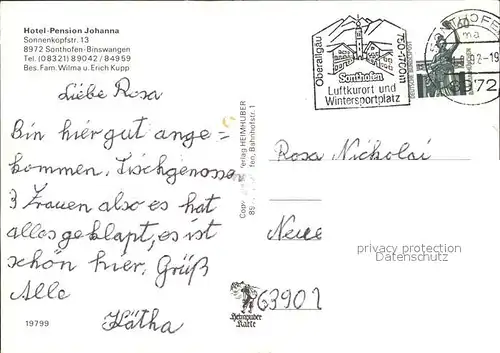 Hotel-Pension Johanna
Sonnenkopfstr. 13
8972 Sonthofen-Binswangen
Tel. (08321) 89042 / 84959
Bes. Fam. Wilma u. Erich Kupp
Liebe Rosa
Bin hier gut ange=
kommen, Tischgenossen
3 Frauen also es hat
alles geklapt, es ist
schön hier, Grüß
Alle
Kätha
19799
Verlag HEIMHUBER
Bahnhofstr. 1
Oberallgäu
750-1700m
Sonthofen
Luftkurort und
Wintersportplatz
Rosa Nickolai
Neue
privacy protection
Datenschutz
Heimhuber
Karte
63901